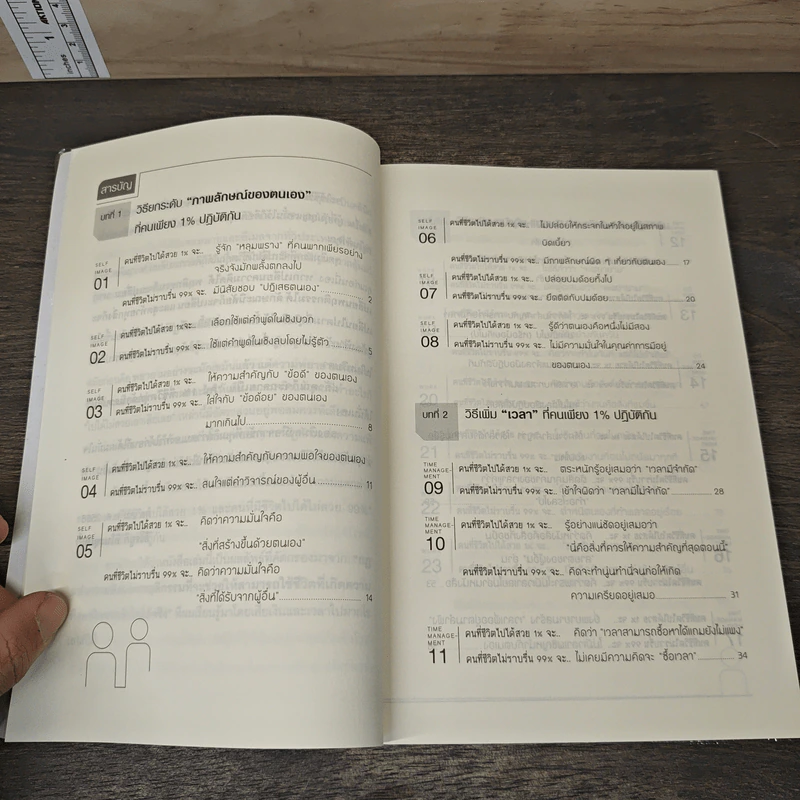 สารบัญ
บทที่ 1 วิธียกระดับ "ภาพลักษณ์ของตนเอง"
ที่คนเพียง 1% ปฏิบัติกัน
SELF IMAGE 01
คนที่ชีวิตไปได้สวย 1% จะ.. รู้จัก "หลุมพราง" ที่คนพากเพียรอย่าง
จริงจังมักพลั้งตกลงไป
คนที่ชีวิตไม่ราบรื่น 99% จะ.. มีนิสัยชอบ "ปฏิเสธตนเอง" 2
SELF IMAGE 02
คนที่ชีวิตไปได้สวย 1% จะ... เลือกใช้แต่คำพูดในเชิงบวก
คนที่ชีวิตไม่ราบรื่น 99% จะ.. ใช้แต่คำพูดในเชิงลบโดยไม่รู้ตัว 5
SELF IMAGE 03
คนที่ชีวิตไปได้สวย 1% จะ... ให้ความสำคัญกับ "ข้อดี" ของตนเอง
คนที่ชีวิตไม่ราบรื่น 99% จะ.. ใส่ใจกับ "ข้อด้อย" ของตนเอง
มากเกินไป 8
SELF IMAGE 04
คนที่ชีวิตไปได้สวย 1% จะ... ให้ความสำคัญกับความพอใจของตนเอง
คนที่ชีวิตไม่ราบรื่น 99% จะ.. สนใจแต่คำวิจารณ์ของผู้อื่น 11
SELF IMAGE 05
คนที่ชีวิตไปได้สวย 1% จะ.. คิดว่าความมั่นใจคือ
"สิ่งที่สร้างขึ้นด้วยตนเอง"
คนที่ชีวิตไม่ราบรื่น 99% จะ.. คิดว่าความมั่นใจคือ
"สิ่งที่ได้รับจากผู้อื่น" 14
SELF IMAGE 06
คนที่ชีวิตไปได้สวย 1% จะ.. ไม่ปล่อยให้กระจกในหัวใจอยู่ในสภาพ
บิดเบี้ยว
คนที่ชีวิตไม่ราบรื่น 99% จะ.. มีภาพลักษณ์ผิด ๆ เกี่ยวกับตนเอง 17
SELF IMAGE 07
คนที่ชีวิตไปได้สวย 1% จะ.. ปล่อยปมด้อยทิ้งไป
คนที่ชีวิตไม่ราบรื่น 99% จะ.. ยึดติดกับปมด้อย 20
SELF IMAGE 08
คนที่ชีวิตไปได้สวย 1% จะ.. รู้ดีว่าตนเองคือหนึ่งไม่มีสอง
คนที่ชีวิตไม่ราบรื่น 99% จะ.. ไม่มีความมั่นใจในคุณค่าการมีอยู่
ของตนเอง 24
บทที่ 2 วิธีเพิ่ม "เวลา" ที่คนเพียง 1% ปฏิบัติกัน
TIME MANAGE-MENT 09
คนที่ชีวิตไปได้สวย 1% จะ.. ตระหนักรู้อยู่เสมอว่า "เวลามีจำกัด"
คนที่ชีวิตไม่ราบรื่น 99% จะ.. เข้าใจผิดว่า "เวลามีไม่จำกัด" 28
TIME MANAGE-MENT 10
คนที่ชีวิตไปได้สวย 1% จะ.. รู้อย่างแน่ชัดอยู่เสมอว่า
"นี่คือสิ่งที่ควรให้ความสำคัญที่สุดตอนนี้"
คนที่ชีวิตไม่ราบรื่น 99% จะ.. คิดจะทำนู่นทำนี่จนก่อให้เกิด
ความเครียดอยู่เสมอ 31
TIME MANAGE-MENT 11
คนที่ชีวิตไปได้สวย 1% จะ.. คิดว่า "เวลาสามารถซื้อหาได้แถมยังไม่แพง"
คนที่ชีวิตไม่ราบรื่น 99% จะ.. ไม่เคยมีความคิดจะ "ซื้อเวลา" 34